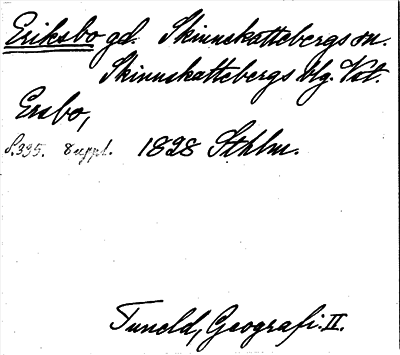 Eriksbo gd. Skinnskattebergs sn.
Skinnskattebergs blg. Vst.
Ersbo,
S.395. Suppl. 1828 Sthlm.
Tuneld, Geografi. II.